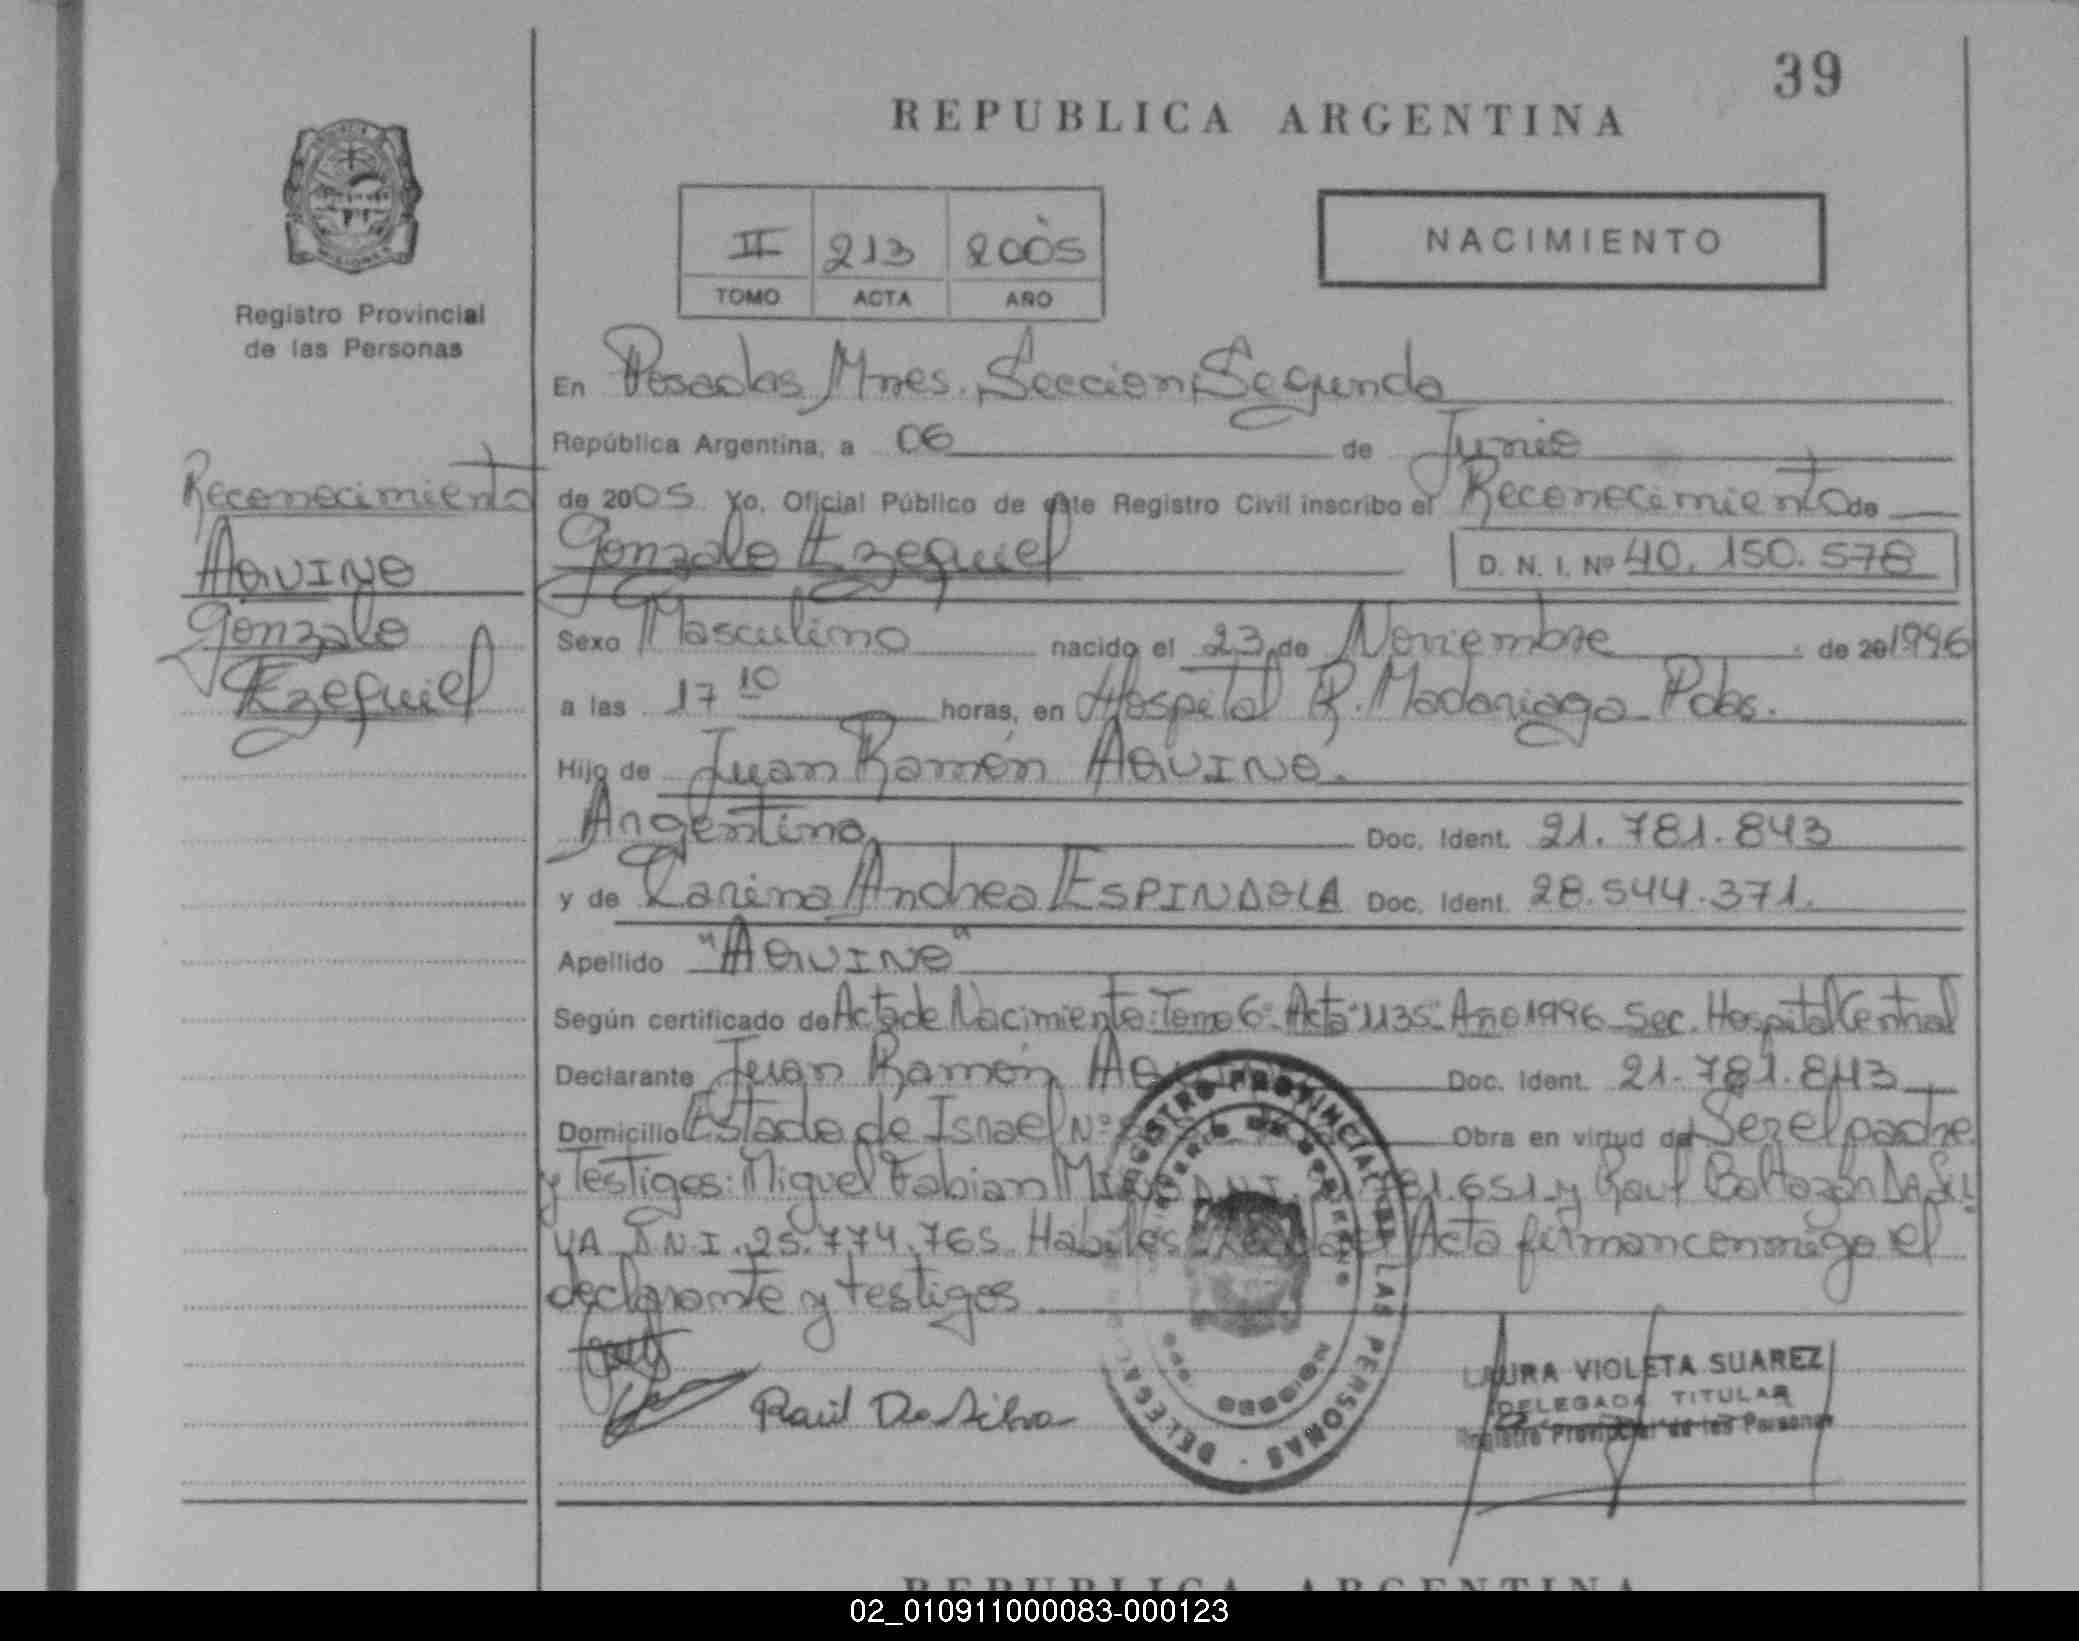 39
REPUBLICA ARGENTINA
II 213 2005
TOMO ACTA AÑO
NACIMIENTO
Registro Provincial
de las Personas
En Posadas, Mnes. Sección Segunda
República Argentina, a 06 de Junio
de 2005 Yo, Oficial Público de este Registro Civil inscribo el Reconocimiento de
Gonzalo Ezequiel D. N. I. Nº 40.150.578
Reconocimiento
AQUINO
Gonzalo
Ezequiel
Sexo Masculino nacido el 23 de Noviembre de 20 1996
a las 17 10 horas, en Hospital R. Madariaga Pdas.
Hijo de Juan Ramón AQUINO.
Argentino Doc. Ident. 21.781.843
y de Karina Andrea ESPINDOLA Doc. Ident. 28.544.371.
Apellido "AQUINO"
Según certificado de Acta de Nacimiento: Tomo 6º Acta "1135" Año 1996 Sec. Hospital Central
Declarante Juan Ramón Doc. Ident. 21.781.843
Domicilio Estado de Israel Nº Obra en virtud de Ser el padre
y Testigos: Miguel Fabian D.N.I. 81.651 y Raul Baltazar DA SIL
VA D.N.I. 25.774.765. Habiles Acta firman conmigo el
declarante y testigos
Raúl Da Silva
REGISTRO PROVINCIAL DE LAS PERSONAS - DELEGACION
MISIONES
LAURA VIOLETA SUAREZ
DELEGADA TITULAR
Registro Provincial de las Personas
REPUBLICA ARGENTINA
02_010911000083-000123